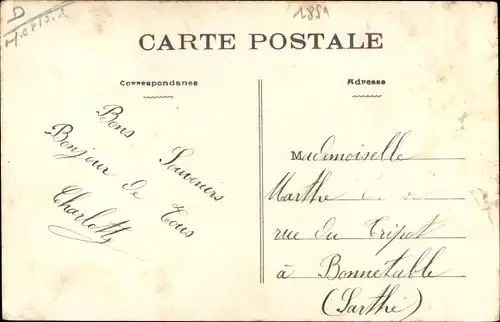 D
1859
CARTE POSTALE
Correspondance
Adresse
Bons Souvenirs
Bonjour de Tous
Charlotte
Mademoiselle
Marthe
rue du Tripot
à Bonnetable
(Sarthe)